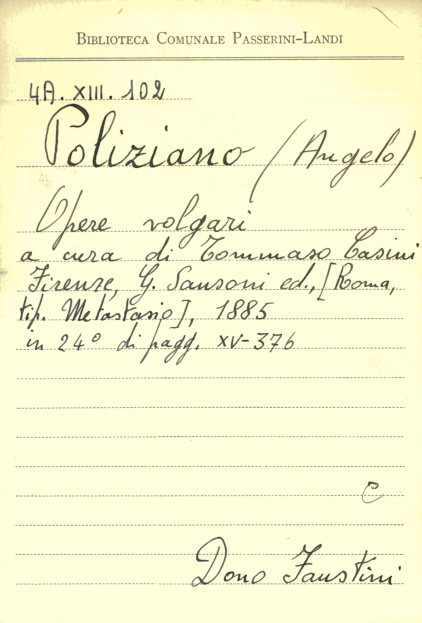 BIBLIOTECA COMUNALE PASSERINI-LANDI
4A. XIII. 102
Poliziano (Angelo)
Opere volgari
a cura di Tommaso Casini
Firenze, G. Sansoni ed., [Roma,
tip. Metastasio], 1885
in 24° di pagg. XV-376
C
Dono Faustini